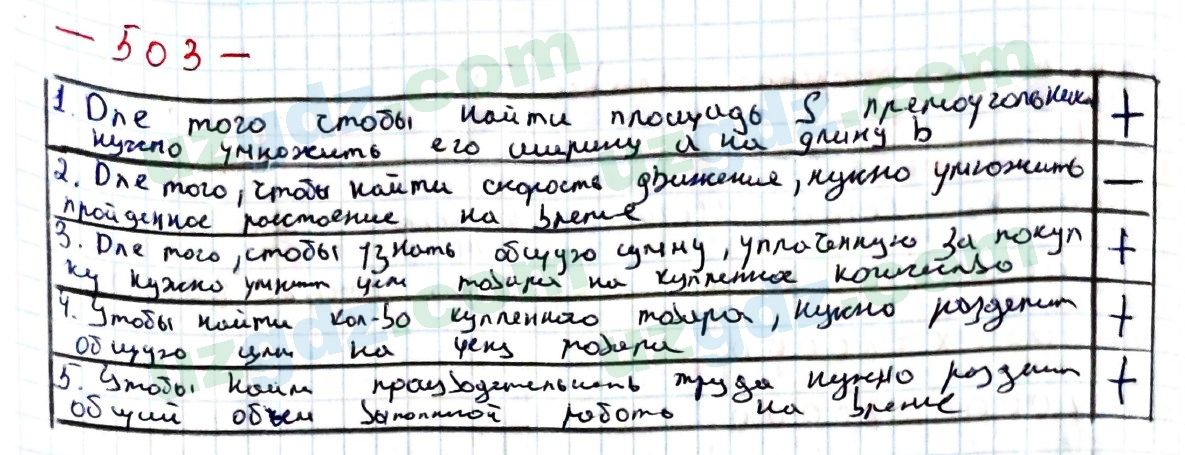 - 503 -
1. Для того чтобы найти площадь S прямоугольник +
нужно умножить его ширину а на длину b
2. Для того, чтобы найти скорость движения, нужно умножить —
пройденное расстояние на время
3. Для того, чтобы узнать общую сумму, уплаченную за покуп +
ку нужно товара на купленное
4. Чтобы найти кол-во купленного товара, нужно разделит +
общую на цену товара
5. Чтобы найти производительность труда нужно раздели +
общий объем работы на время